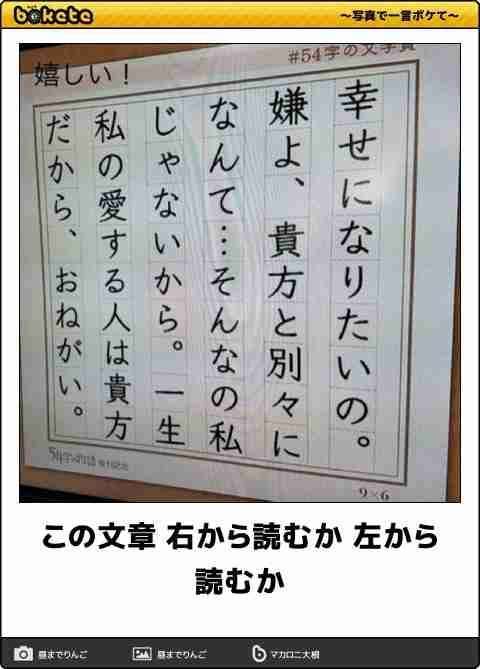 bokete
～写真で一言ボケて～
嬉しい！
#54字の文学賞
幸せになりたいの。
嫌よ、貴方と別々に
なんて…そんなの私
じゃないから。一生
私の愛する人は貴方
だから、おねがい。
54字の物語
9×6
この文章 右から読むか 左から
読むか
昼までりんご
昼までりんご
マカロニ大根